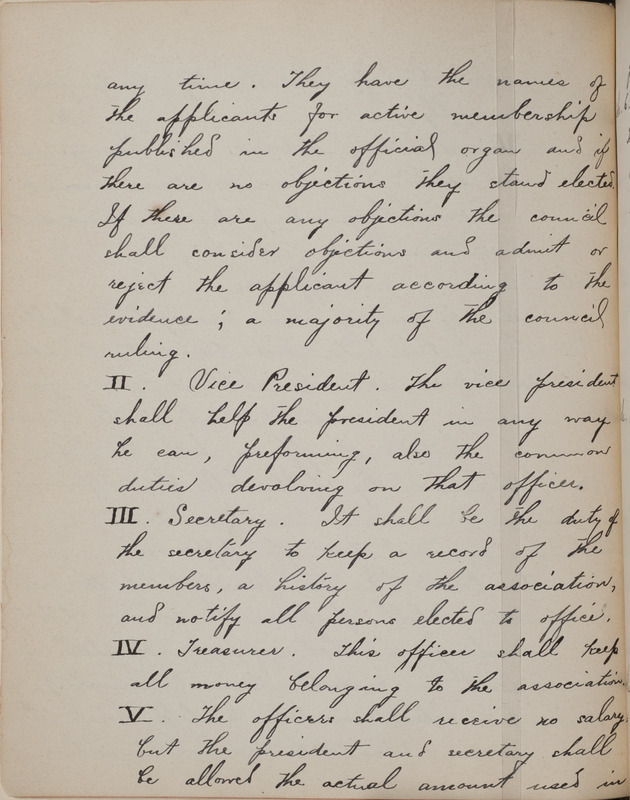 any time. They have the names of
the applicants for active membership
published in the official organ and if
there are no objections they stand elected.
If there are any objections the council
shall consider objections and admit or
reject the applicant according to the
evidence; a majority of the council
ruling.
II. Vice President. The vice president
shall help the president in any way
he can, preforming, also the common
duties devolving on that officer.
III. Secretary. It shall be the duty of
the secretary to keep a record of the
members, a history of the association,
and notify all persons elected to office.
IV. Treasurer. This officer shall keep
all money belonging to the association.
V. The officers shall receive no salary
but the president and secretary shall
be allowed the actual amount used in